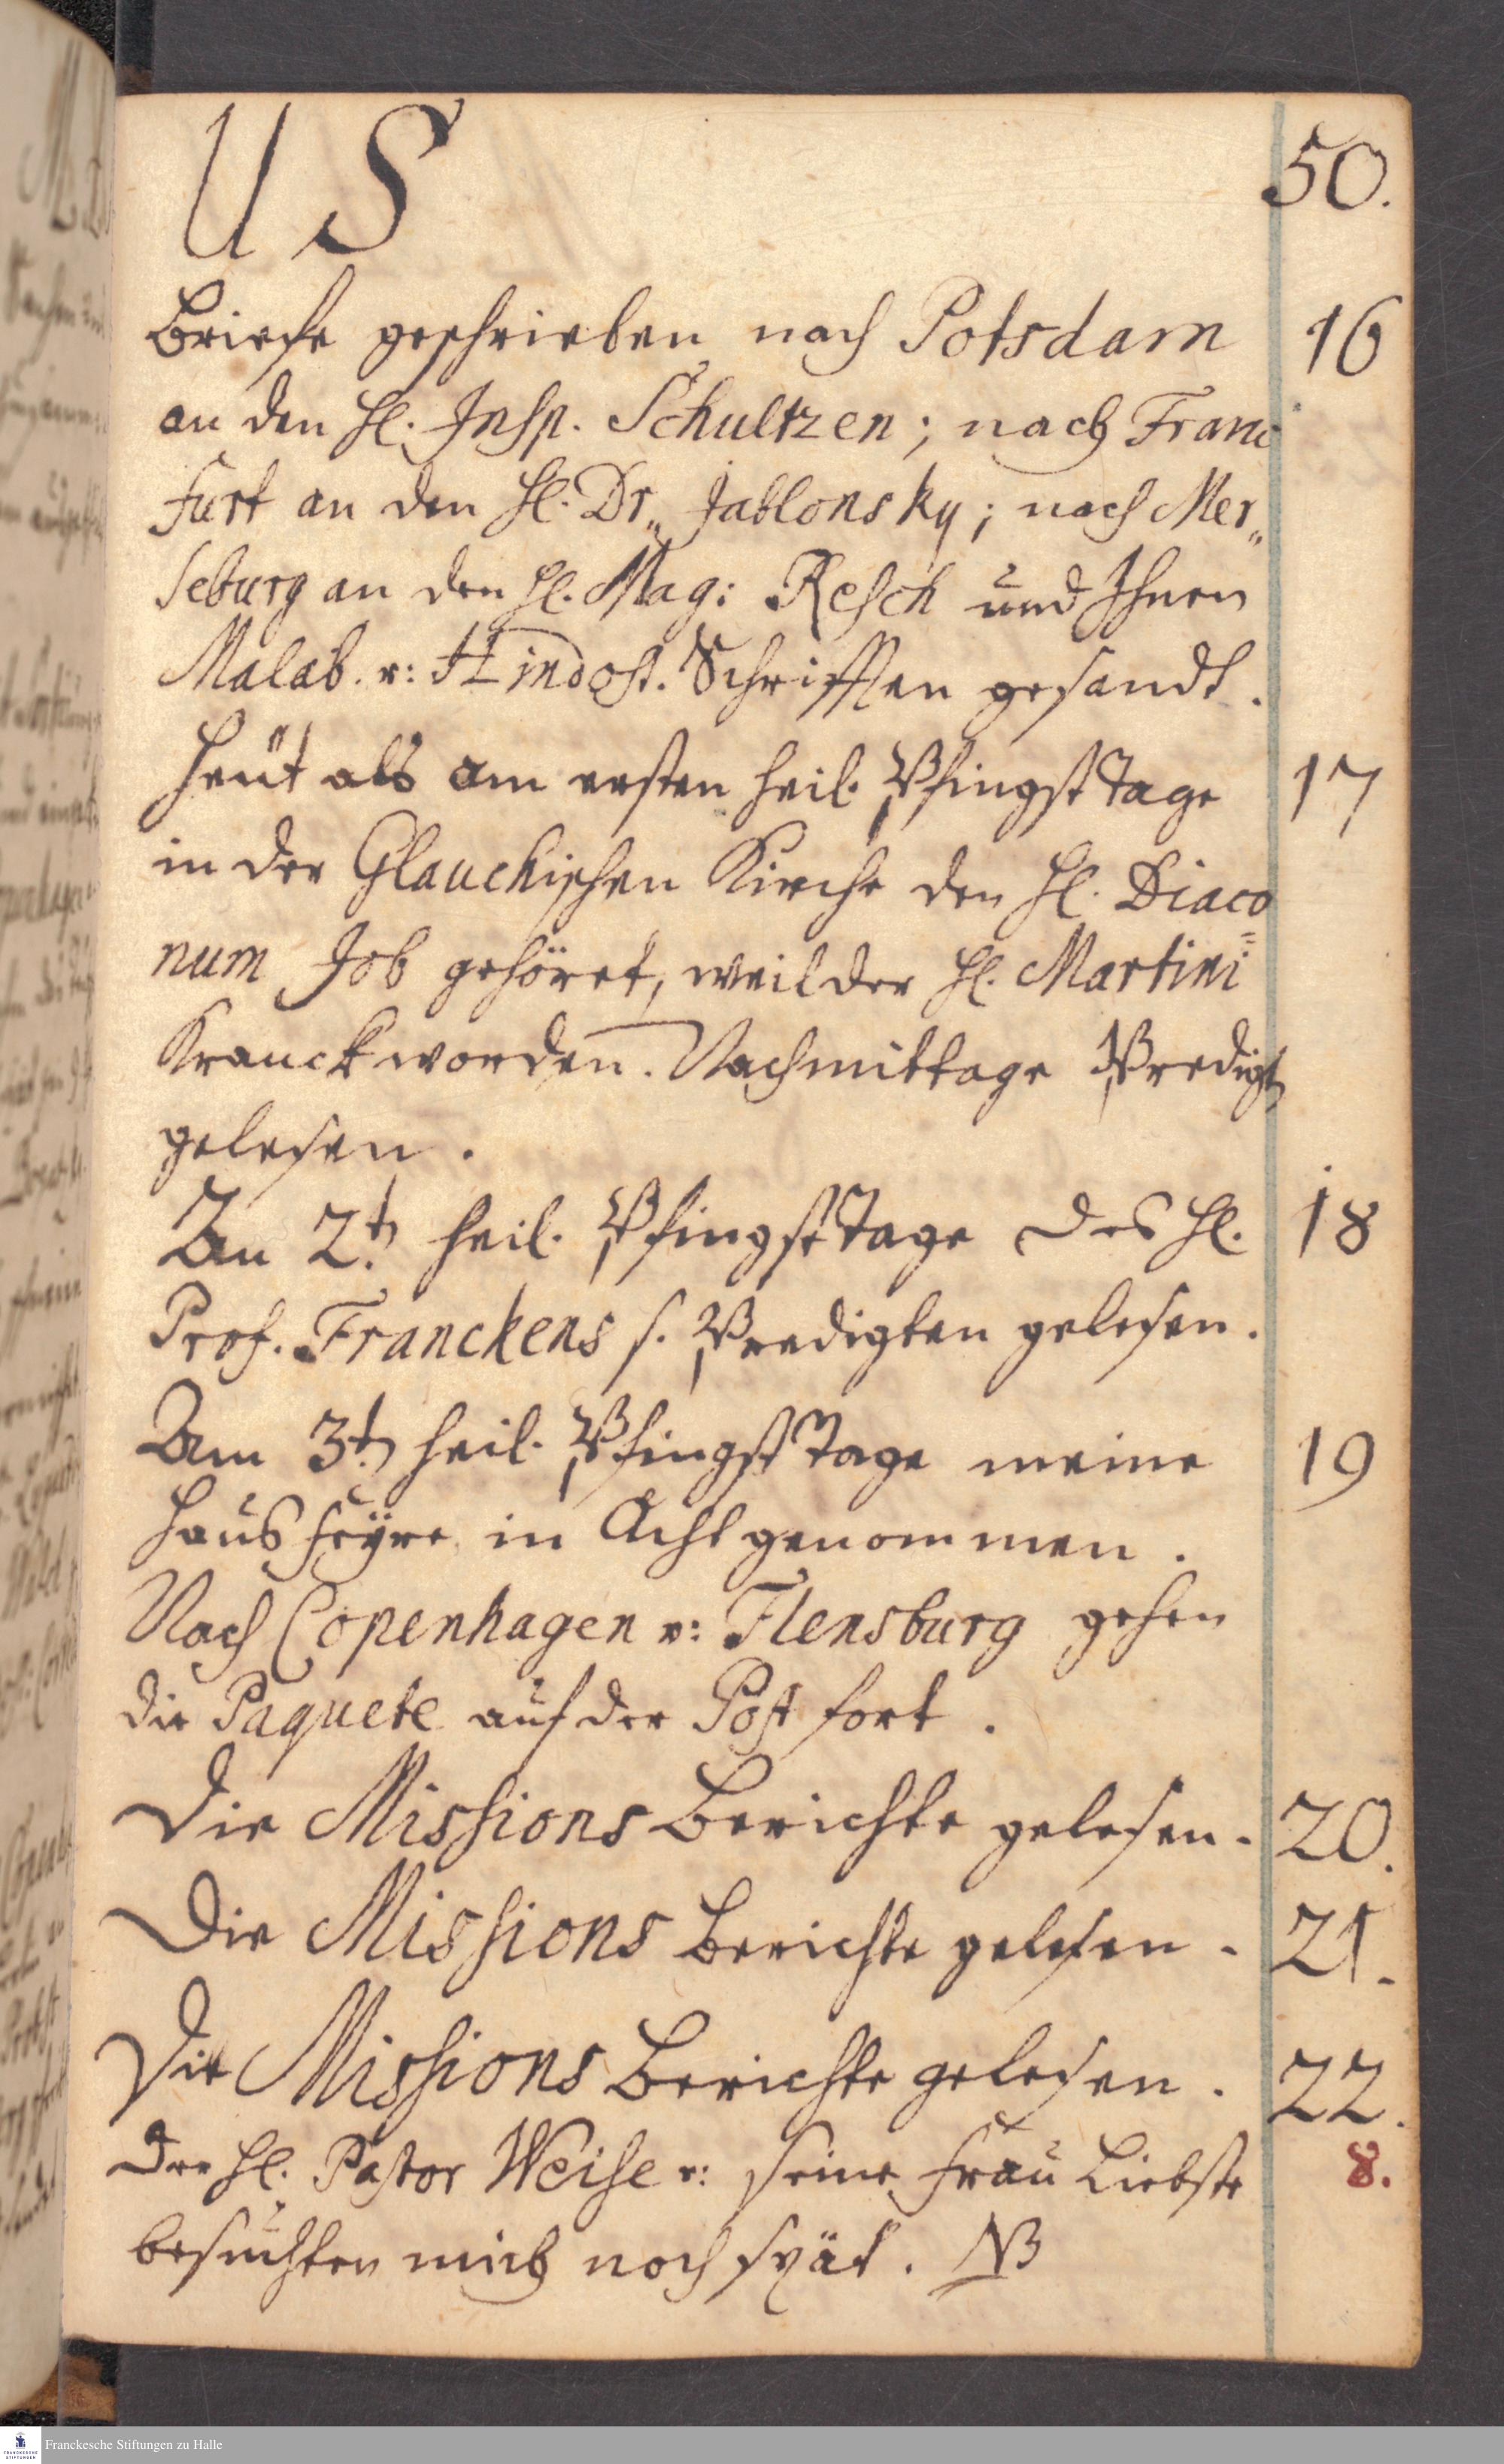 U S
50.
Briefe geschrieben nach Potsdam
16
an den H. Insp. Schultzen; nach Franc
furt an den H. Dr. Jablonsky; nach Mer„
seburg an den H. Mag: Resch und Ihnen
Malab. u: Hindost. Schrifften gesandt.
Heüt als am ersten heil. PfingstTage
17
in der Glauchischen Kirche den H. Diaco=
num Job gehöret, weil der H. Martini
Kranck worden. Nachmittage Predigt
gelesen.
Am 2t heil. PfingstTage des H.
18
Prof. Franckens s. Predigten gelesen.
Am 3t heil. PfingstTage meine
19
Hausfeÿre in Acht genommen.
Nach Copenhagen u: Flensburg gehen
die Paquete auf der Post fort.
Die Missions Berichte gelesen.
20.
Die Missions Berichte gelesen.
21.
Die Missions Berichte gelesen.
22.
Der H. Pastor Weise u: seine Frau Liebste
8.
besuchten mich noch spät. NB
Franckesche Stiftungen zu Halle